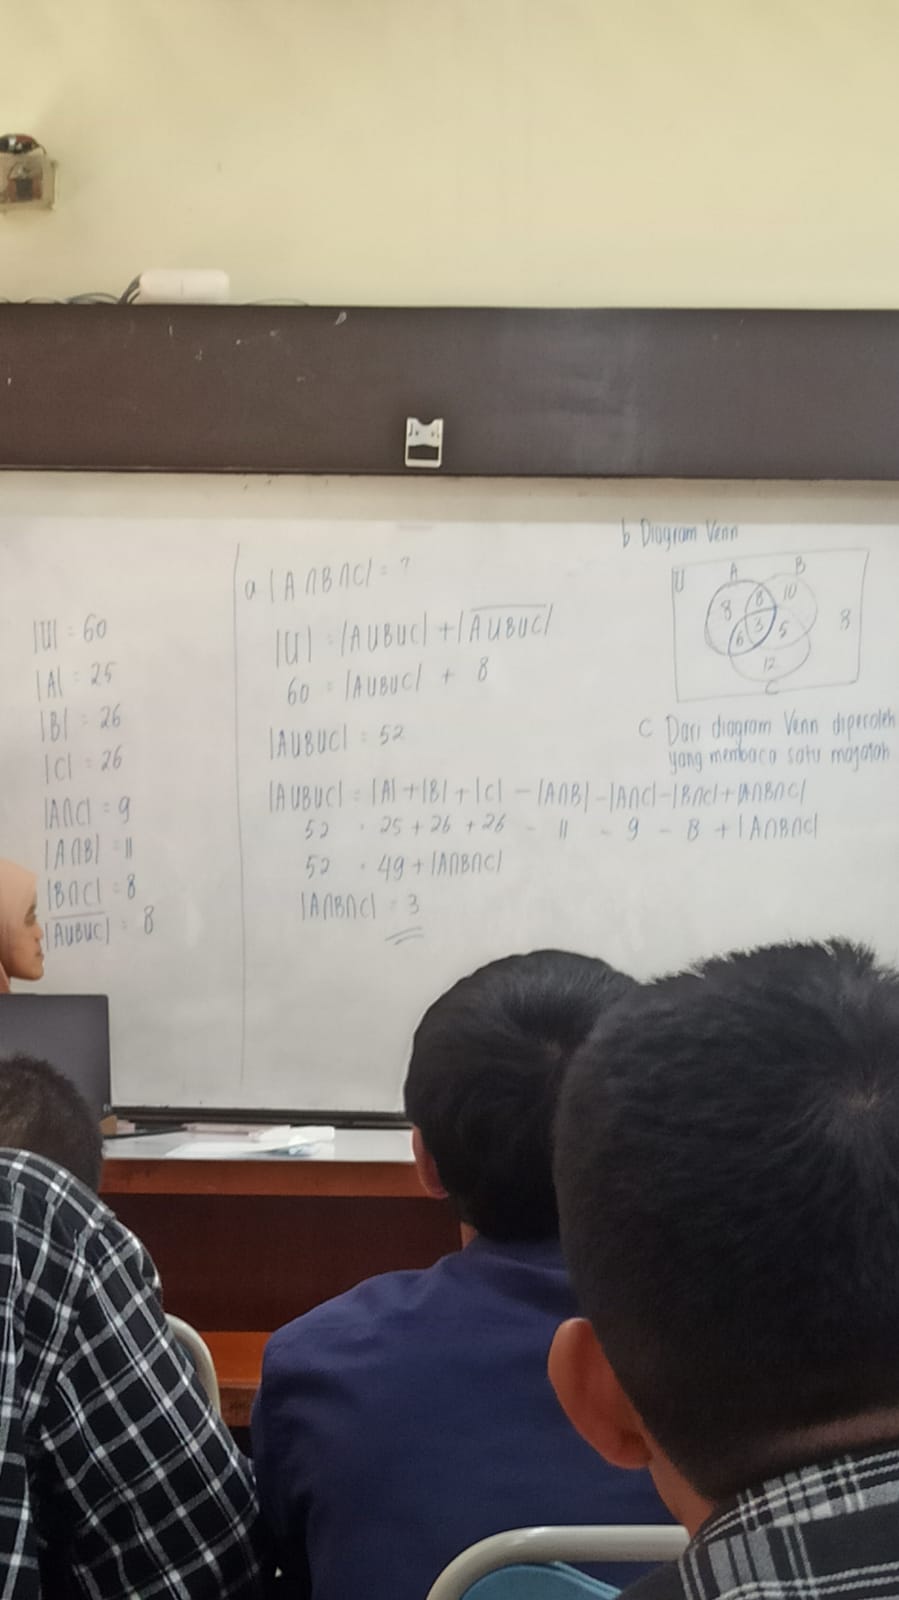 |U| = 60
|A| = 25
|B| = 26
|C| = 26
|A∩C| = 9
|A∩B| = 11
|B∩C| = 8
|A̅U̅B̅U̅C̅| = 8
a |A∩B∩C| = ?
|U| = |AUBUC| + |A̅U̅B̅U̅C̅|
60 = |AUBUC| + 8
|AUBUC| = 52
|AUBUC| = |A| + |B| + |C| - |A∩B| - |A∩C| - |B∩C| + |A∩B∩C|
52 = 25 + 26 + 26 - 11 - 9 - 8 + |A∩B∩C|
52 = 49 + |A∩B∩C|
|A∩B∩C| = 3
b Diagram Venn
U A B
8 8 10
6 3 5 8
12
C
C Dari diagram Venn diperoleh
yang membaca satu majalah